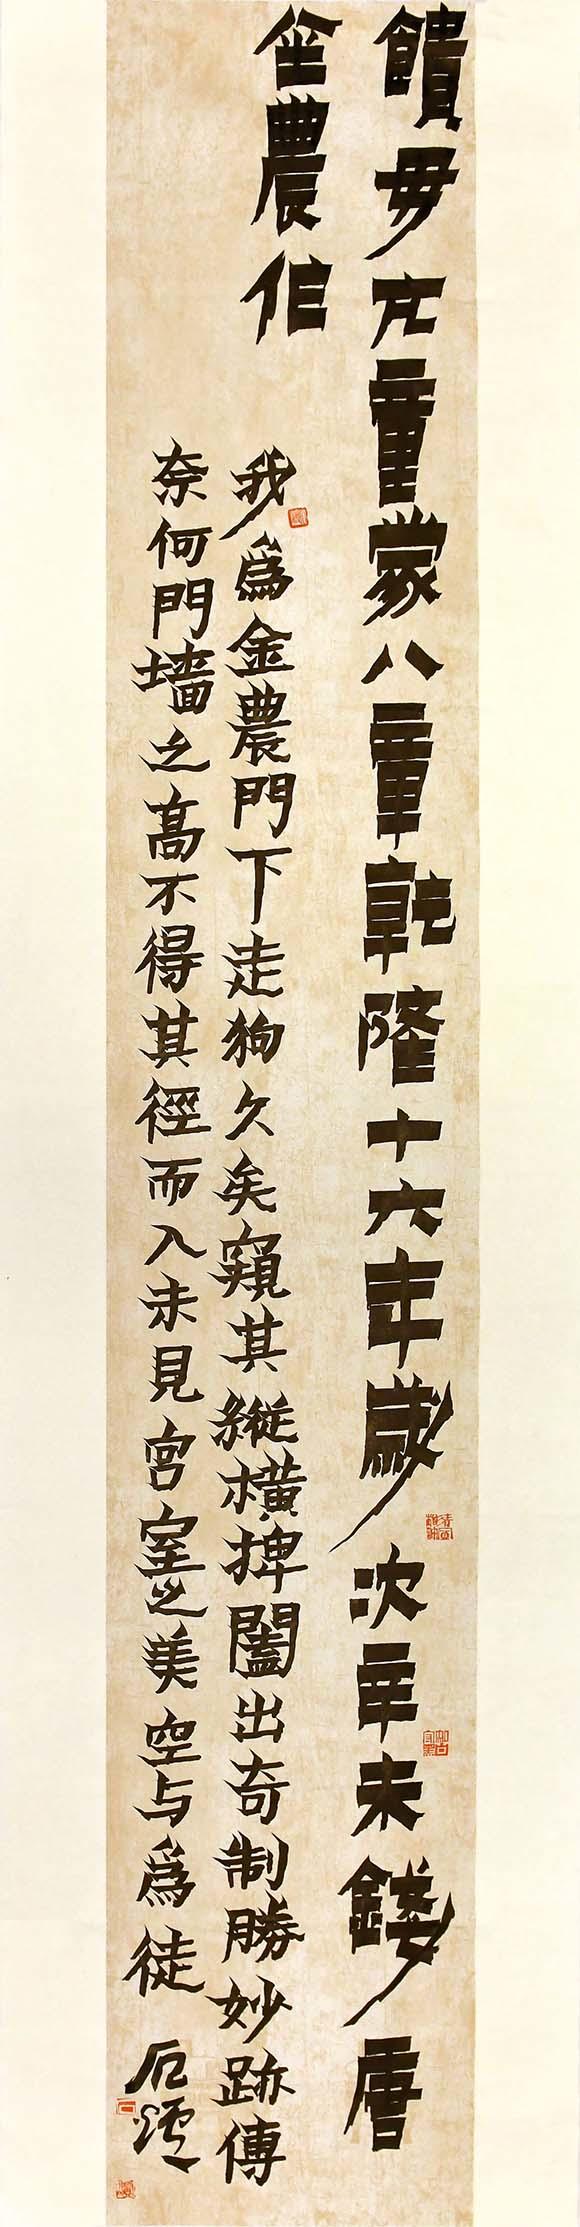 饋毋亢童蒙八章乾隆十六年歲次辛未錢唐
金農作
我爲金農門下走狗久矣窺其縱橫捭闔出奇制勝妙跡傳
奈何門墻之高不得其徑而入未見宮室之美空与爲徒